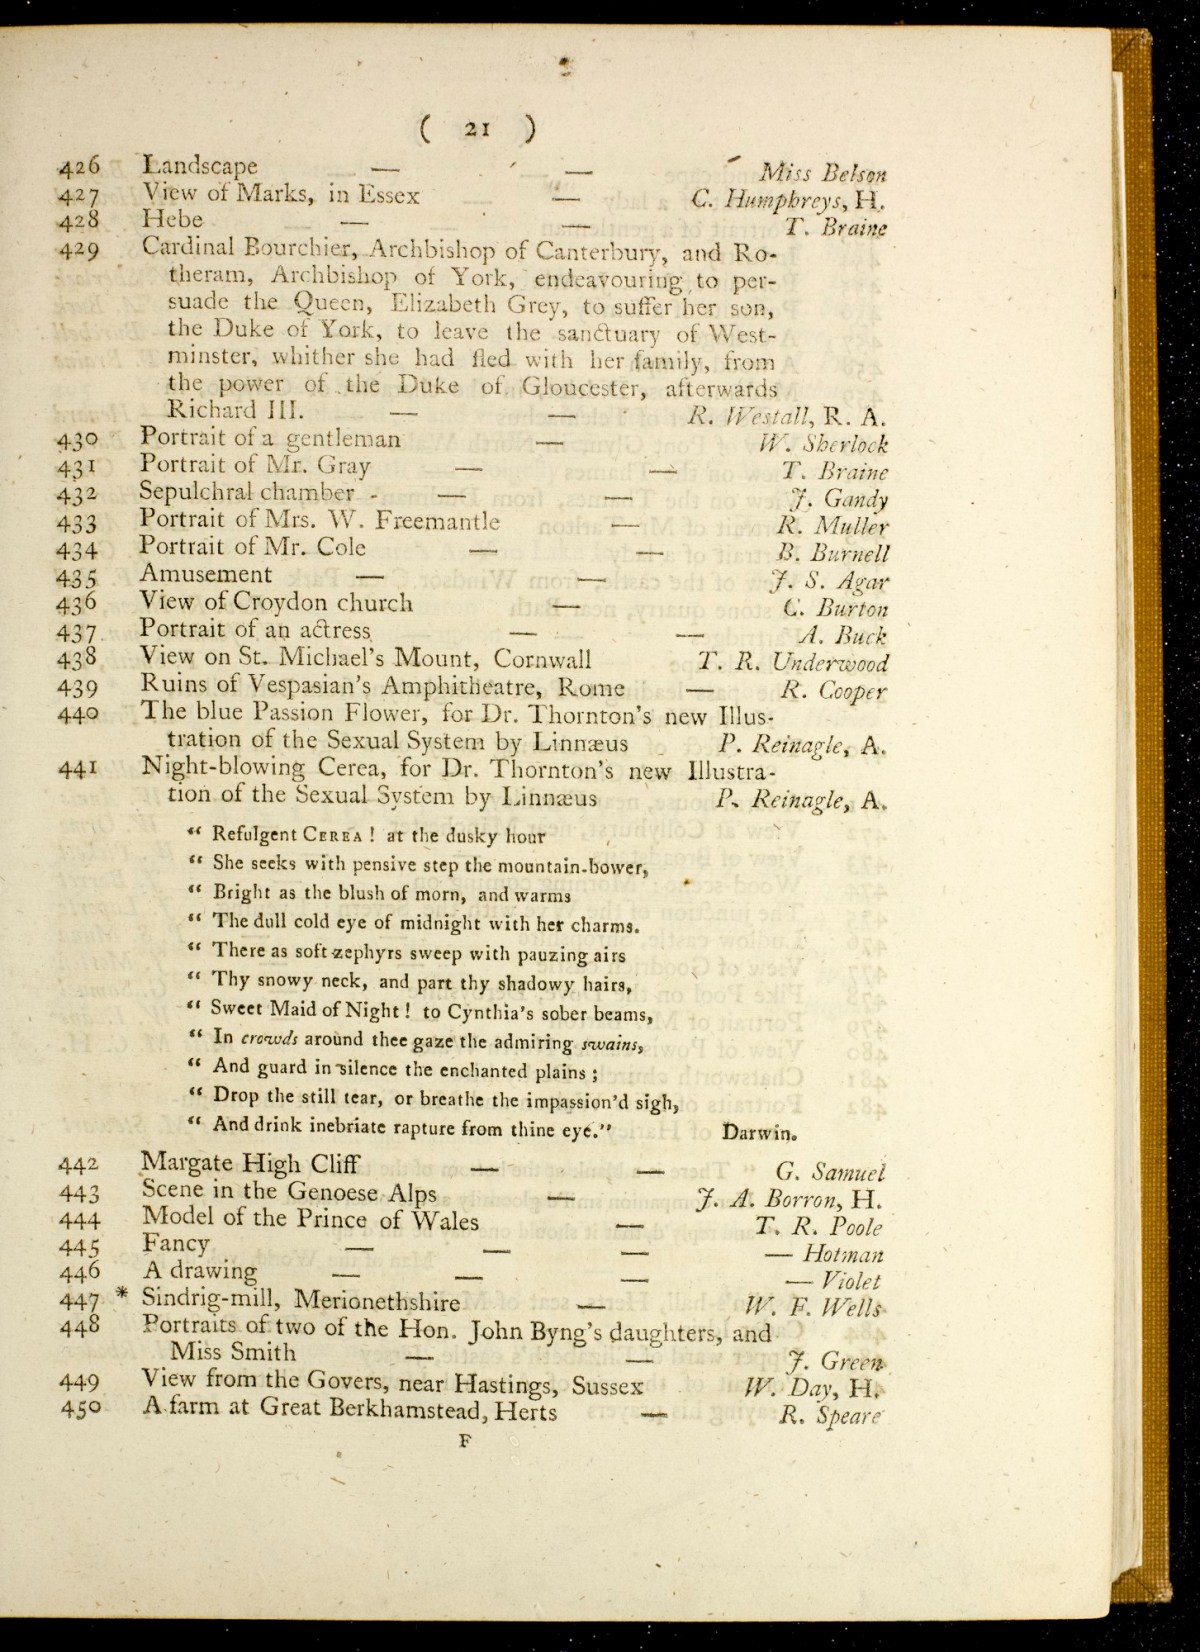 ( 21 )
426 Landscape — — Miss Belson
427 View of Marks, in Essex — C. Humphreys, H.
428 Hebe — — T. Braine
429 Cardinal Bourchier, Archbishop of Canterbury, and Ro-
theram, Archbishop of York, endeavouring to per-
suade the Queen, Elizabeth Grey, to suffer her son,
the Duke of York, to leave the sanctuary of West-
minster, whither she had fled with her family, from
the power of the Duke of Gloucester, afterwards
Richard III. — — R. Westall, R. A.
430 Portrait of a gentleman — W. Sherlock
431 Portrait of Mr. Gray — — T. Braine
432 Sepulchral chamber - — — J. Gandy
433 Portrait of Mrs. W. Freemantle — R. Muller
434 Portrait of Mr. Cole — — B. Burnell
435 Amusement — — J. S. Agar
436 View of Croydon church — C. Burton
437 Portrait of an actress — — A. Buck
438 View on St. Michael's Mount, Cornwall T. R. Underwood
439 Ruins of Vespasian's Amphitheatre, Rome — R. Cooper
440 The blue Passion Flower, for Dr. Thornton's new Illus-
tration of the Sexual System by Linnæus P. Reinagle, A.
441 Night-blowing Cerea, for Dr. Thornton's new Illustra-
tion of the Sexual System by Linnæus P. Reinagle, A.
“ Refulgent CEREA ! at the dusky hour
“ She seeks with pensive step the mountain-bower,
“ Bright as the blush of morn, and warms
“ The dull cold eye of midnight with her charms.
“ There as soft zephyrs sweep with pauzing airs
“ Thy snowy neck, and part thy shadowy hairs,
“ Sweet Maid of Night ! to Cynthia's sober beams,
“ In crowds around thee gaze the admiring swains,
“ And guard in silence the enchanted plains ;
“ Drop the still tear, or breathe the impassion'd sigh,
“ And drink inebriate rapture from thine eye.” Darwin.
442 Margate High Cliff — — G. Samuel
443 Scene in the Genoese Alps — J. A. Borron, H.
444 Model of the Prince of Wales — T. R. Poole
445 Fancy — — — — Hotman
446 A drawing — — — — Violet
447 * Sindrig-mill, Merionethshire — W. F. Wells
448 Portraits of two of the Hon. John Byng's daughters, and
Miss Smith — — J. Green
449 View from the Govers, near Hastings, Sussex W. Day, H.
450 A farm at Great Berkhamstead, Herts — R. Speare
F